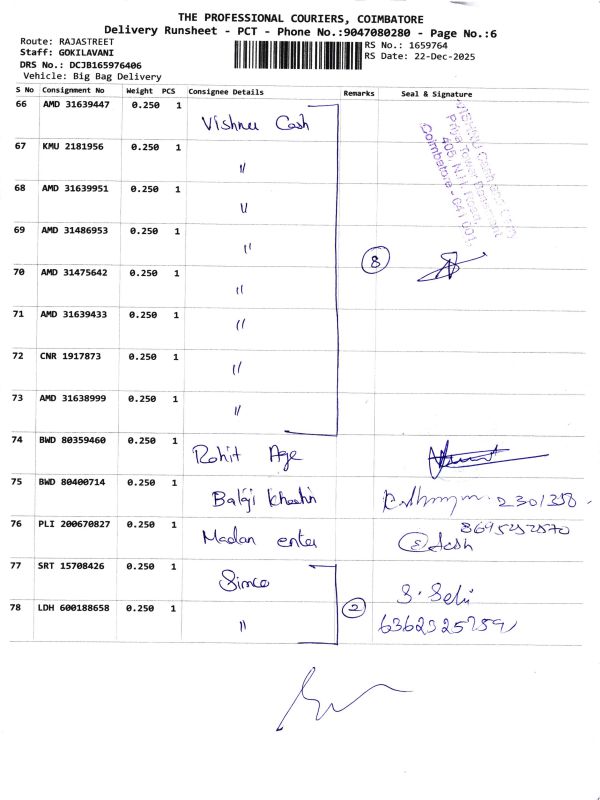 THE PROFESSIONAL COURIERS, COIMBATORE
Delivery Runsheet - PCT - Phone No.:9047080280 - Page No.:6
Route: RAJASTREET
Staff: GOKILAVANI
DRS No.: DCJB165976406
Vehicle: Big Bag Delivery
RS No.: 1659764
RS Date: 22-Dec-2025
S No Consignment No Weight PCS Consignee Details Remarks Seal & Signature
66 AMD 31639447 0.250 1 Vishnu Cash
67 KMU 2181956 0.250 1 "
68 AMD 31639951 0.250 1 "
69 AMD 31486953 0.250 1 "
70 AMD 31475642 0.250 1 " 8
71 AMD 31639433 0.250 1 "
72 CNR 1917873 0.250 1 "
73 AMD 31638999 0.250 1 "
VISHNU Cash and
Priya Tower Basement
405, N.H. Road,
Coimbatore - 641 001.
74 BWD 80359460 0.250 1 Rohit Age
75 BWD 80400714 0.250 1 Balaji 2301350
76 PLI 200670827 0.250 1 Madan enter
77 SRT 15708426 0.250 1 Simco S. Selvi
78 LDH 600188658 0.250 1 " 2